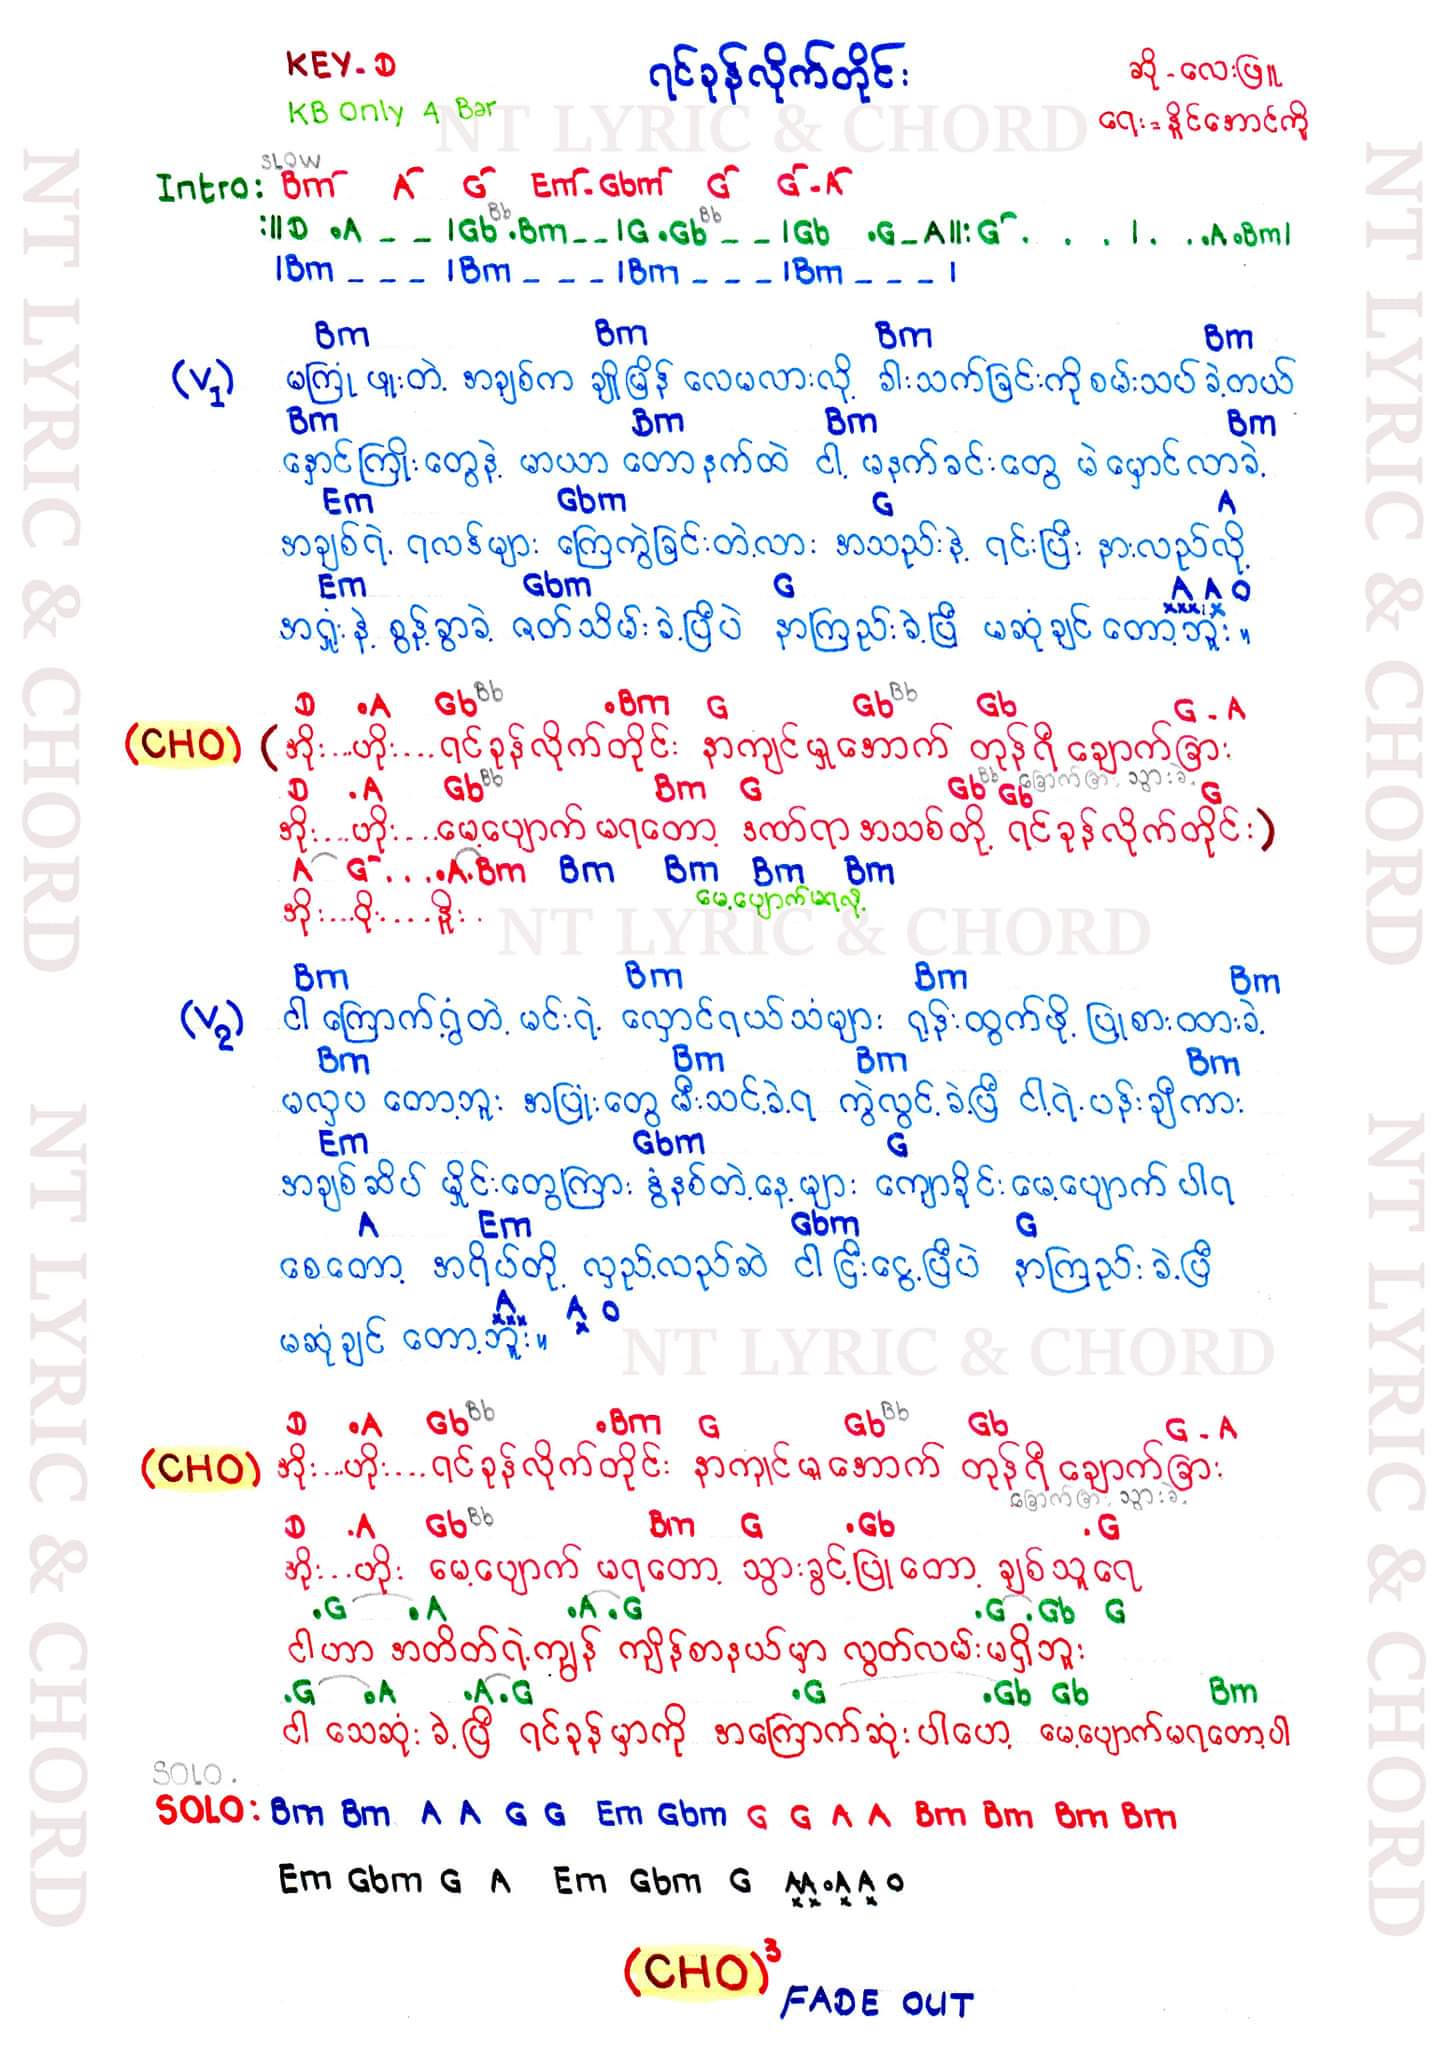 KEY-D
ရင်ခုန်လိုက်တိုင်း
ဆို - လေးဖြူ
KB Only 4 Bar
ရေး = နိုင်အောင်ကို
NT LYRIC & CHORD
SLOW
Intro: Bm A G Em-Gbm G G-A
:||D .A _ _ |Gb Bb .Bm _ _ |G .Gb Bb _ _ |Gb .G _ A||: G . . . | . . .A .Bm|
|Bm _ _ _ |Bm _ _ _ |Bm _ _ _ |Bm _ _ _ |
Bm Bm Bm Bm
(V1) မကြုံဖူးတဲ့ အချစ်က ချိုမြိန်လေမလားလို့ ခါးသက်ခြင်းကို စမ်းသပ်ခဲ့တယ်
Bm Bm Bm Bm
နှောင်ကြိုးတွေနဲ့ မာယာ တောနက်ထဲ ငါ့ မနက်ခင်းတွေ မဲမှောင်လာခဲ့
Em Gbm G A
အချစ်ရဲ့ ရလဒ်များ ကြေကွဲခြင်းတဲ့လား အသည်းနဲ့ ရင်းပြီး နားလည်လို့
Em Gbm G A A O
အရှုံးနဲ့ စွန့်ခွာခဲ့ ဇာတ်သိမ်းခဲ့ပြီပဲ နာကြည်းခဲ့ပြီ မဆုံချင် တော့ဘူး။
D .A Gb Bb .Bm G Gb Bb Gb G - A
(CHO) (အိုး...ဟိုး....ရင်ခုန်လိုက်တိုင်း နာကျင်မှုအောက် တုန်ရီ ချောက်ခြား
ခြောက်ခြား သွားခဲ့
D .A Gb Bb Bm G Gb Bb Gb G
အိုး...ဟိုး....မေ့ပျောက် မရတော့ ဒဏ်ရာ အသစ်တို့ ရင်ခုန်လိုက်တိုင်း)
A G . . . .A.Bm Bm Bm Bm Bm
မေ့ပျောက်မရလို့
အိုး...ဝိုး....နိုး..
NT LYRIC & CHORD
Bm Bm Bm Bm
(V2) ငါ ကြောက်ရွံ့တဲ့ မင်းရဲ့ လှောင်ရယ်သံများ ရုန်းထွက်ဖို့ ပြုစားထားခဲ့
Bm Bm Bm Bm
မလှပ တော့ဘူး အပြုံးတွေ မီးသင့်ခဲ့ရ ကွဲလွင့်ခဲ့ပြီ ငါ့ရဲ့ ပန်းချီကား
Em Gbm G
အချစ်ဆိပ် မှိုင်းတွေကြား နွံနစ်တဲ့နေ့များ ကျောခိုင်းမေ့ပျောက် ပါရ
A Em Gbm G
စေတော့ အရိပ်တို့ လှည့်လည်ဆဲ ငါ ငြီးငွေ့ပြီပဲ နာကြည်းခဲ့ပြီ
A A O
မဆုံချင် တော့ဘူး။
NT LYRIC & CHORD
D .A Gb Bb .Bm G Gb Bb Gb G - A
(CHO) အိုး...ဟိုး....ရင်ခုန်လိုက်တိုင်း နာကျင်မှုအောက် တုန်ရီ ချောက်ခြား
ခြောက်ခြား သွားခဲ့
D .A Gb Bb Bm G .Gb .G
အိုး...ဟိုး မေ့ပျောက် မရတော့ သွားခွင့်ပြုတော့ ချစ်သူရေ
.G .A .A .G .G .Gb G
ငါဟာ အတိတ်ရဲ့ကျွန် ကျိန်စာနယ်မှာ လွတ်လမ်းမရှိဘူး
.G .A .A .G .G .Gb Gb Bm
ငါ သေဆုံးခဲ့ပြီ ရင်ခုန်မှာကို အကြောက်ဆုံးပါပေါ့ မေ့ပျောက်မရတော့ပါ
SOLO.
SOLO: Bm Bm A A G G Em Gbm G G A A Bm Bm Bm Bm
Em Gbm G A Em Gbm G AA.A A O
(CHO)3
FADE OUT
NT LYRIC & CHORD
NT LYRIC & CHORD
NT LYRIC & CHORD
NT LYRIC & CHORD